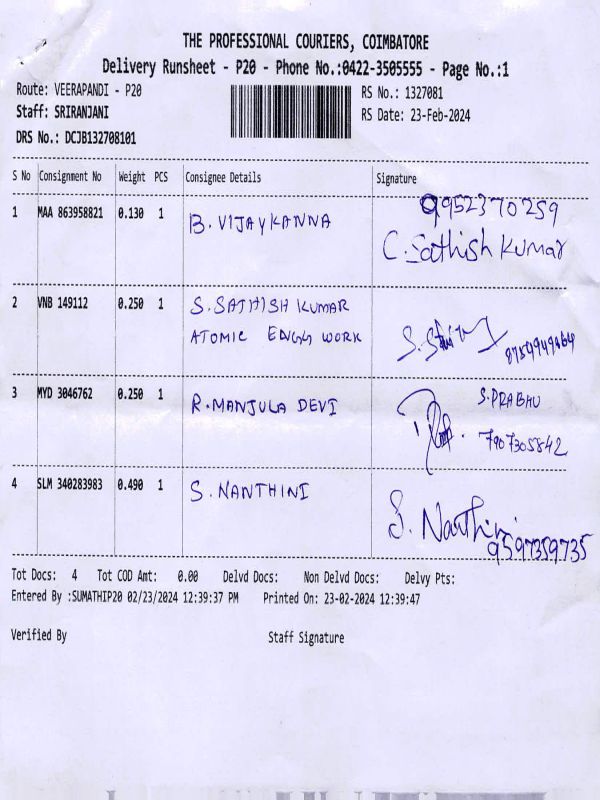 THE PROFESSIONAL COURIERS, COIMBATORE
Delivery Runsheet - P20 - Phone No.:0422-3505555 - Page No.:1
Route: VEERAPANDI - P20 RS No.: 1327081
Staff: SRIRANJANI RS Date: 23-Feb-2024
DRS No.: DCJB132708101
S No Consignment No Weight PCS Consignee Details Signature
9952370259
1 MAA 863958821 0.130 1 B. VIJAYKANNA
C. Sathish Kumar
2 VNB 149112 0.250 1 S. SATHISH KUMAR
ATOMIC ENGG WORK S. 8754949464
3 MYD 3046762 0.250 1 R. MANJULA DEVI S. PRABHU
7907305842
4 SLM 340283983 0.490 1 S. NANTHINI
S. Nanthini
9597359735
Tot Docs: 4 Tot COD Amt: 0.00 Delvd Docs: Non Delvd Docs: Delvy Pts:
Entered By :SUMATHIP20 02/23/2024 12:39:37 PM Printed On: 23-02-2024 12:39:47
Verified By Staff Signature